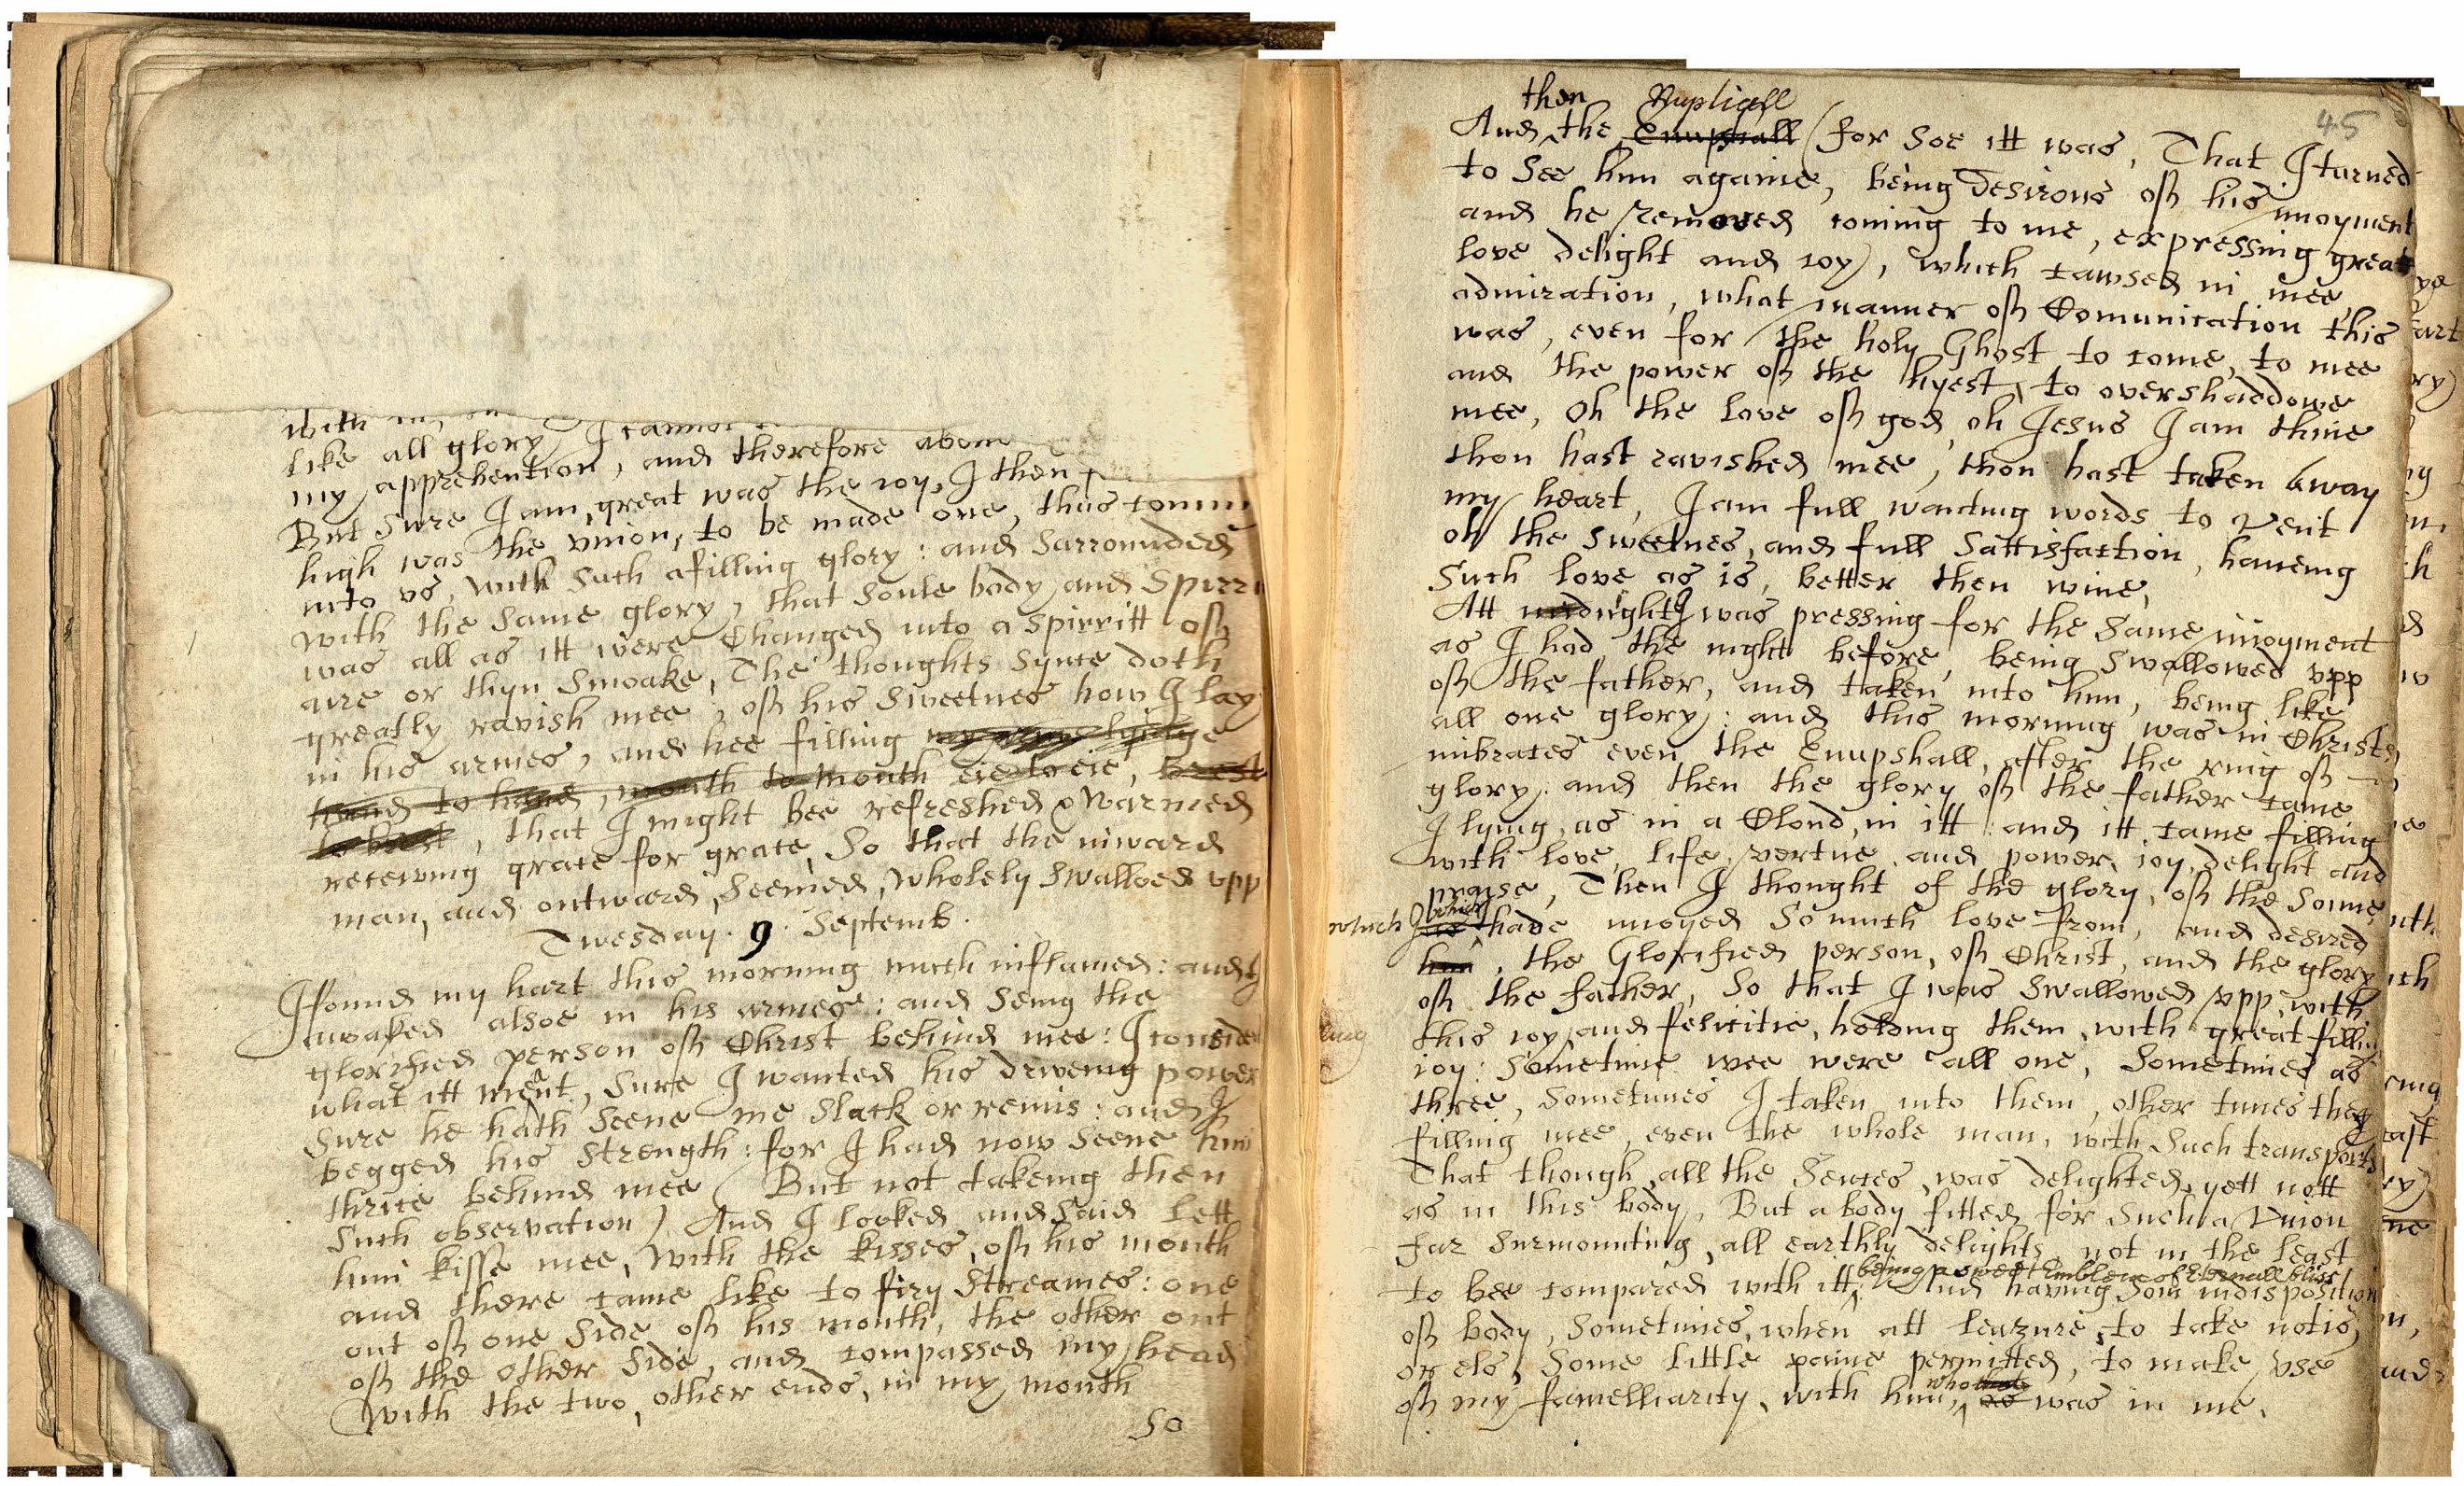 like all glory I cannot
my apprehention, and therefore
But Sure I am, great was the ioy, I then
high was the vnion, to be made one, thus
into vs, with Such afilling glory: and Sarrounded
with the Same glory, that Soule body and
was all as itt were Changed into a spirritt off
aire or thyn Smoake, The thoughts Synce doth
greatly ravish mee, off his Sweetnes how I lay
in his armes, and hee filling
hand to hand, mouth to mouth eie to eie, brest
to brest, that I might bee refreshed & warmed
receiving grace for grace, So that the inward
man, and outward, Seemed, wholely Swalloed vpp
Twesday. 9. Septemb.
I found my hart this morning much inflamed: and
awaked alsoe in his armes: and Seing the
glorified person off Christ behind mee: I
what itt ment, Sure I wanted his driveing power
Sure he hath Seene me Slack or remis: and I
begged his Strength: for I had now Seene him
thrice behind mee (But not takeing then
Such observation) And I looked and Said lett
him kisse mee, with the kisses, off his mouth
and there came like to firy Streames: one
out off one Side off his mouth, the other out
off the other Side, and compassed my head
With the two, other ends, in my mouth
So
45
then Nuptiall
And the Enupshall (for Soe itt was, That I turned
to See him againe, being Desirous off his inioyment
and he removed coming to me, expressing great
love delight and ioy), which cawsed in mee
admiration, what manner off Comunication this
was, even for the holy Ghost to come, to mee
and the power off the hyest, to overshaddowe
mee, Oh the love off god, oh Jesus I am thine
thou hast ravished mee, thou hast taken away
my heart, I am full wanting words to vent
oh the Sweetnes, and full Sattisfaction, haueing
Such love as is, better then wine,
Att midnight I was pressing for the Same inioyment
as I had the night before, being Swallowed vpp
off the father, and taken into him, being like
all one glory: and this morning was in Christs
imbraces even the Enupshall, after the ring off
glory. and then the glory off the father came
I lying, as in a Cloud, in itt: and itt came filling
with love, life, vertue, and power, ioy, delight and
praise, Then I thought of the glory, off the Sonne
which
which I hade inioyed So much love from, and desired
him, the Glorified person, off Christ, and the glory
off the father, So that I was Swallowed vpp, with
this ioy, and felicitie, holding them, with great
ioy: Sometime wee were all one, Sometimes as
three, Sometimes I taken into them, other times they
filling mee, even the whole man, with Such transports
That though, all the Sences, was delighted, yett nott
as in this body, But a body fitted for Such a Vnion
far Surmounting, all earthly delights, not in the least
being a sweet Emblem of Eternall bliss
to bee compared with itt, And having Som indisposition
off body, Sometimes, when att leazure, to take notis,
or els, Some little paine permitted, to make vse
who
off my famelliarity, with him, as was in me.